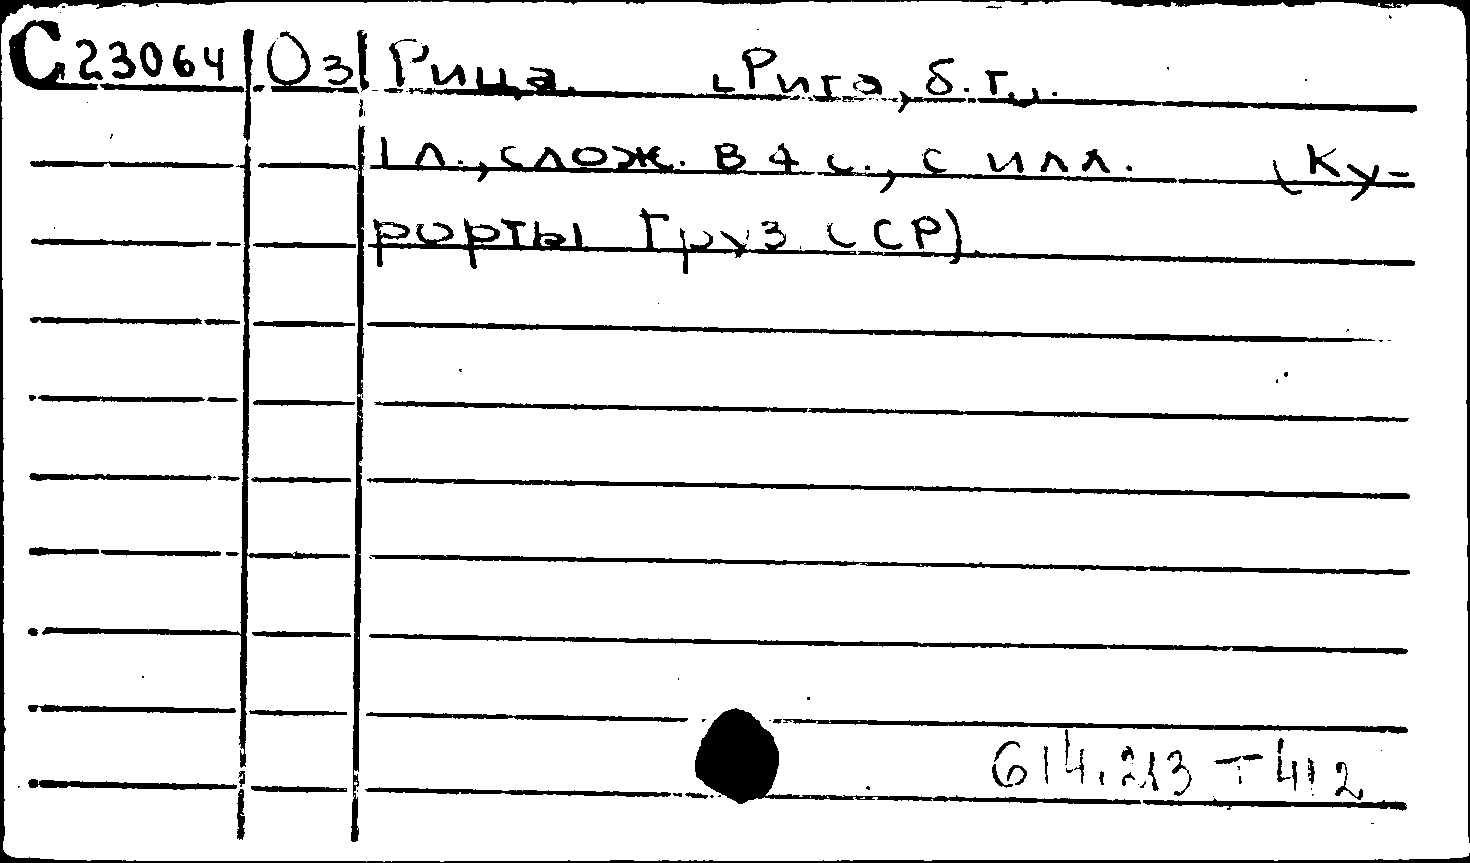 С23064 Оз Рица. [Рига, б. г.].
1 л., слож. в 4 с., с илл. (Ку-
рорты Груз ССР).
614.213 - 412